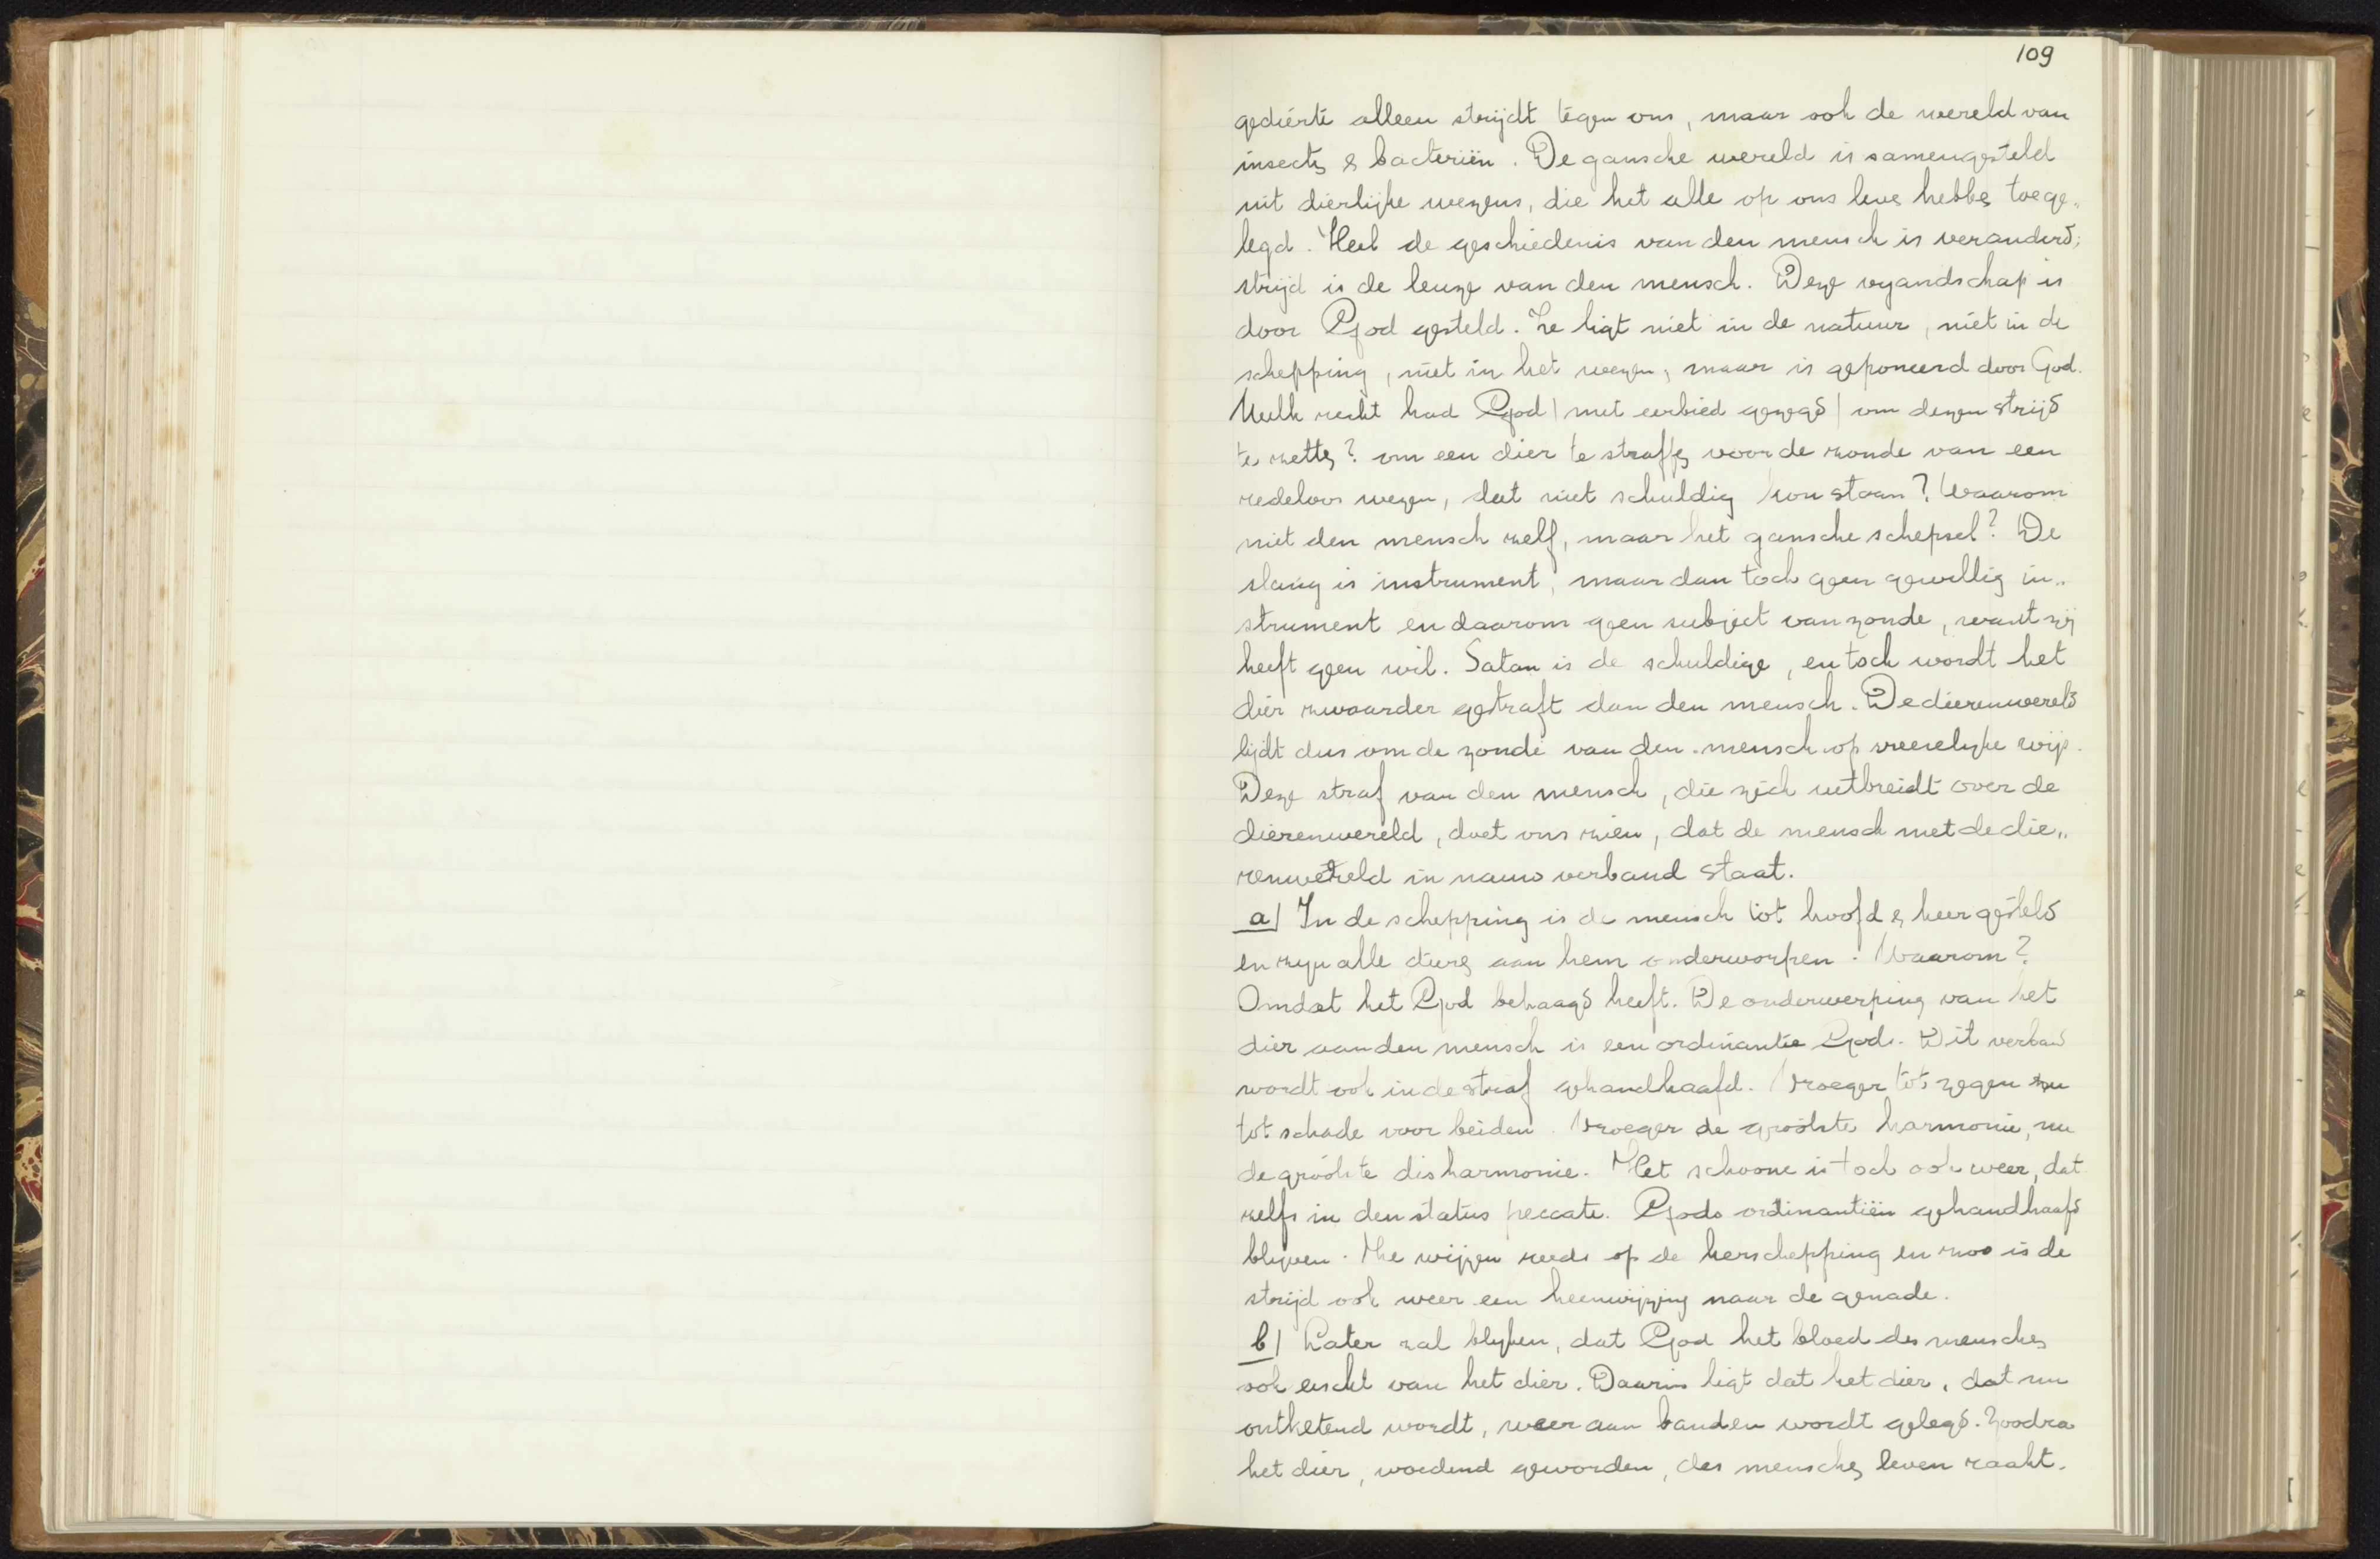 109
gedierte alleen strijdt tegen ons, maar ook de wereld van
insecten & bacteriën. De gansche wereld is samengesteld
uit dierlijke wezens, die het alle op ons leven hebben toege„
legd. Heel de geschiedenis van den mensch is veranderd;
strijd is de leuze van den mensch. Deze vyandschap is
door God gesteld. Ze ligt niet in de natuur, niet in de
schepping, niet in het wezen, maar is geponeerd door God.
Welk recht had God | met eerbied gezegd | om dezen strijd
te zetten? om een dier te straffen voor de zonde van een
redeloos wezen, dat niet schuldig kon staan? Waarom
niet den mensch zelf, maar het gansche schepsel? De
slang is instrument, maar dan toch geen gewillig in„
strument en daarom geen subject van zonde, want zij
heeft geen wil. Satan is de schuldige, en toch wordt het
dier zwaarder gestraft dan den mensch. De dierenwereld
lijdt dus om de zonde van den mensch op vreeselyke wijs.
Deze straf van den mensch, die zich uitbreidt over de
dierenwereld, doet ons zien, dat de mensch met de die„
renwereld in nauw verband staat.
a| In de schepping is de mensch tot hoofd en heer gesteld
en zyn alle dieren aan hem onderworpen. Waarom?
Omdat het God behaagd heeft. De onderwerping van het
dier aan den mensch is een ordinantie Gods. Dit verband
wordt ook in de straf gehandhaafd. Vroeger tot zegen nu
tot schade voor beiden. Vroeger de grootste harmonie, nu
de grootste disharmonie. Het schoone is toch ook weer, dat
zelfs in den status peccati. Gods ordinantiën gehandhaafd
blyven. Ze wijzen reeds op de herschepping en zoo is de
strijd ook weer een heenwijzing naar de genade.
b| Later zal blyken, dat God het bloed des menschen
ook eischt van het dier. Daarin ligt dat het dier, dat nu
ontketend wordt, weer aan banden wordt gelegd. Zoodra
het dier, woedend geworden, des menschen leven raakt.